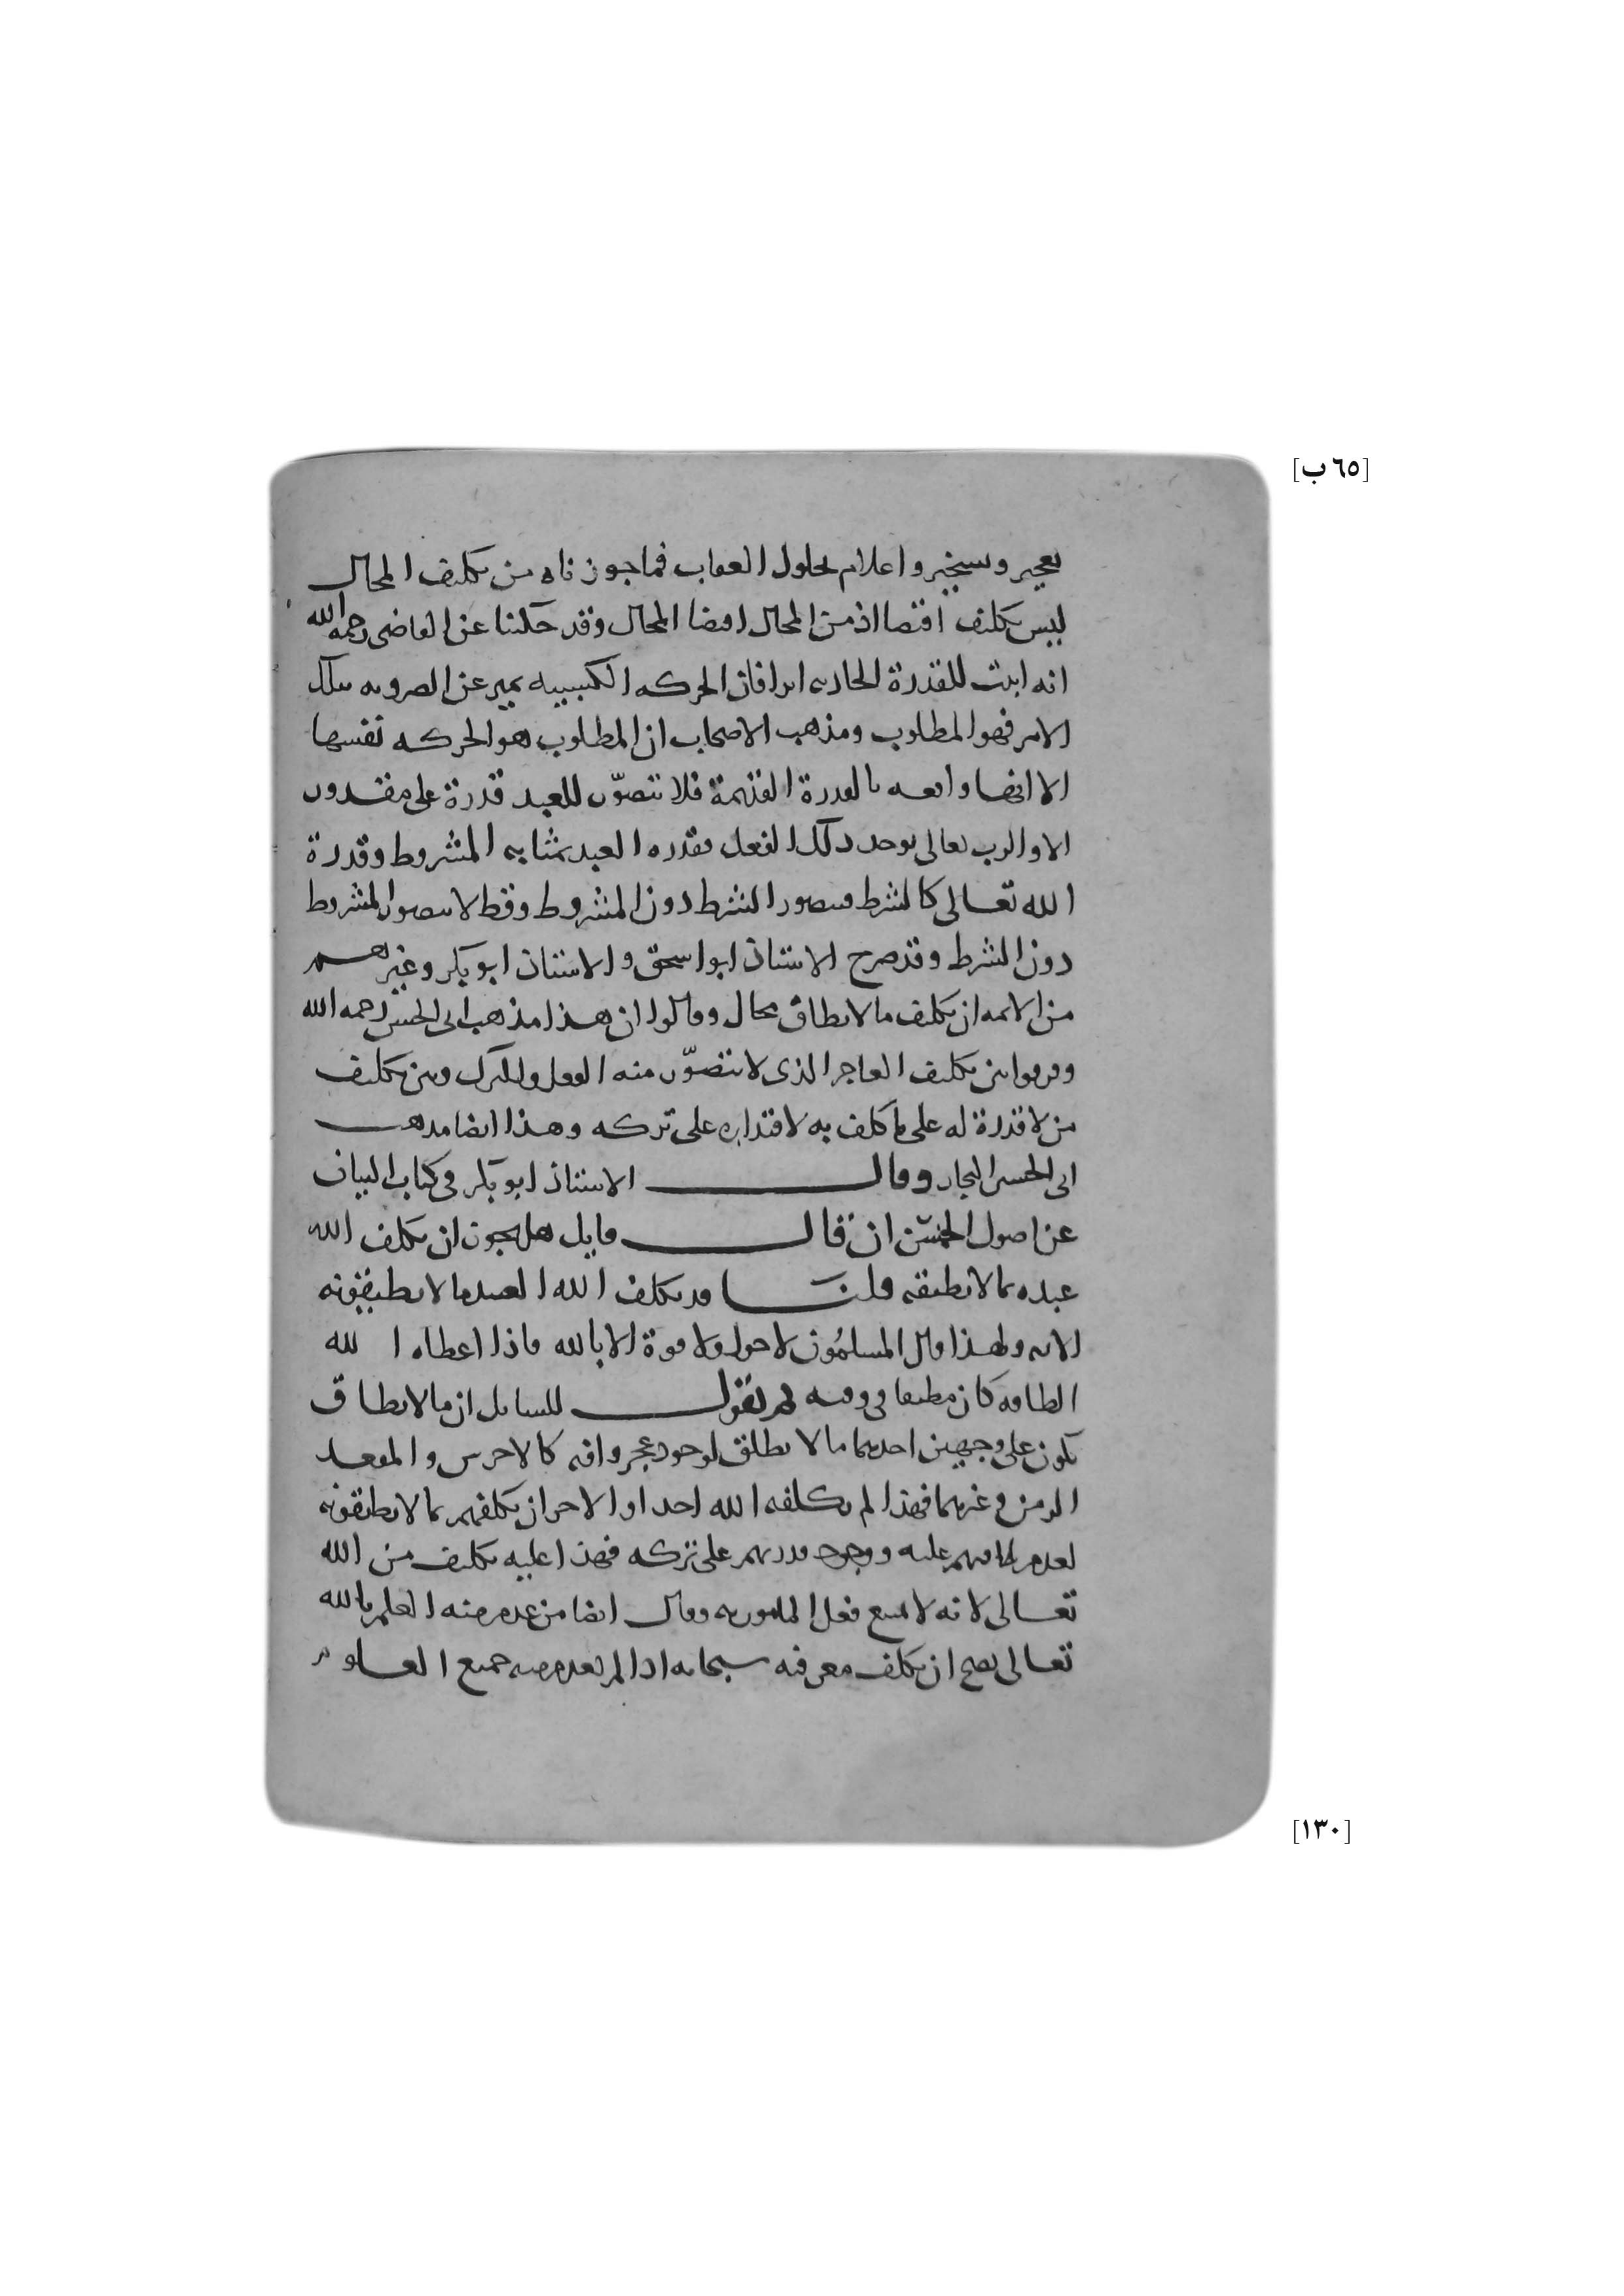 [٦٥ ب]
تعجيز وتسخير واعلام بحلول العقاب فما جوزناه من تكليف المحال
ليس تكليف اقتضا اذ من المحال اقتضا المحال وقد حكينا عن القاضى رحمه الله
انه اثبت للقدرة الحادثه اثرا فان الحركه الكسبيه تميز عن الضروريه بذلك
الامر فهو المطلوب ومذهب الاصحاب ان المطلوب هو الحركه نفسها
الا انها واقعه بالقدرة القديمة فلا تتصوّر للعبد قدرة على مقدور
الا والرب تعالى يوجد ذلك الفعل فقدره العبد بمثابه المشروط وقدرة
الله تعالى كالشرط فيتصور الشرط دون المشروط وقط لا يتصور المشروط
دون الشرط وقد صرح الاستاذ ابو اسحق والاستاذ ابو بكر وغيرهم
من الائمه ان تكليف ما لا يطاق محال وقالوا ان هذا مذهب ابى الحسن رحمه الله
وفرقوا بين تكليف العاجز الذى لا تتصوّر منه الفعل والترك وبين تكليف
من لا قدرة له على ما كلف به لاقتداره على تركه وهذا ايضا مذهب
ابى الحسين النجار وقال الاستاذ ابو بكر فى كتاب البيان
عن اصول الخمسين ان قال قايل هل يجوز ان يكلف الله
عبده ما لا يطيقه قلنا قد يكلف الله العبد ما لا يطيقونه
الا به ولهذا قال المسلمون لا حول ولا قوة الا بالله فاذا اعطاه الله
الطاقه كان مطيقا فى وقته ثم نقول للسايل ان ما لا يطاق
يكون على وجهين احدهما ما لا يطاق لوجود عجز وافه كالاخرس والمقعد
الزمن وغيرهما فهذا لم يكلفه الله احدا والاخر ان يكلفهم ما لا يطيقونه
لعدم طاقتهم عليه ووجود قدرتهم على تركه فهذا عليه تكليف من الله
تعالى لانه لا يمنع فعل المامور به وقال ايضا من عدم منه العلم بالله
تعالى يصح ان يكلف معرفته سبحانه اذا لم يعدم منه جميع العلوم
[١٣٠]